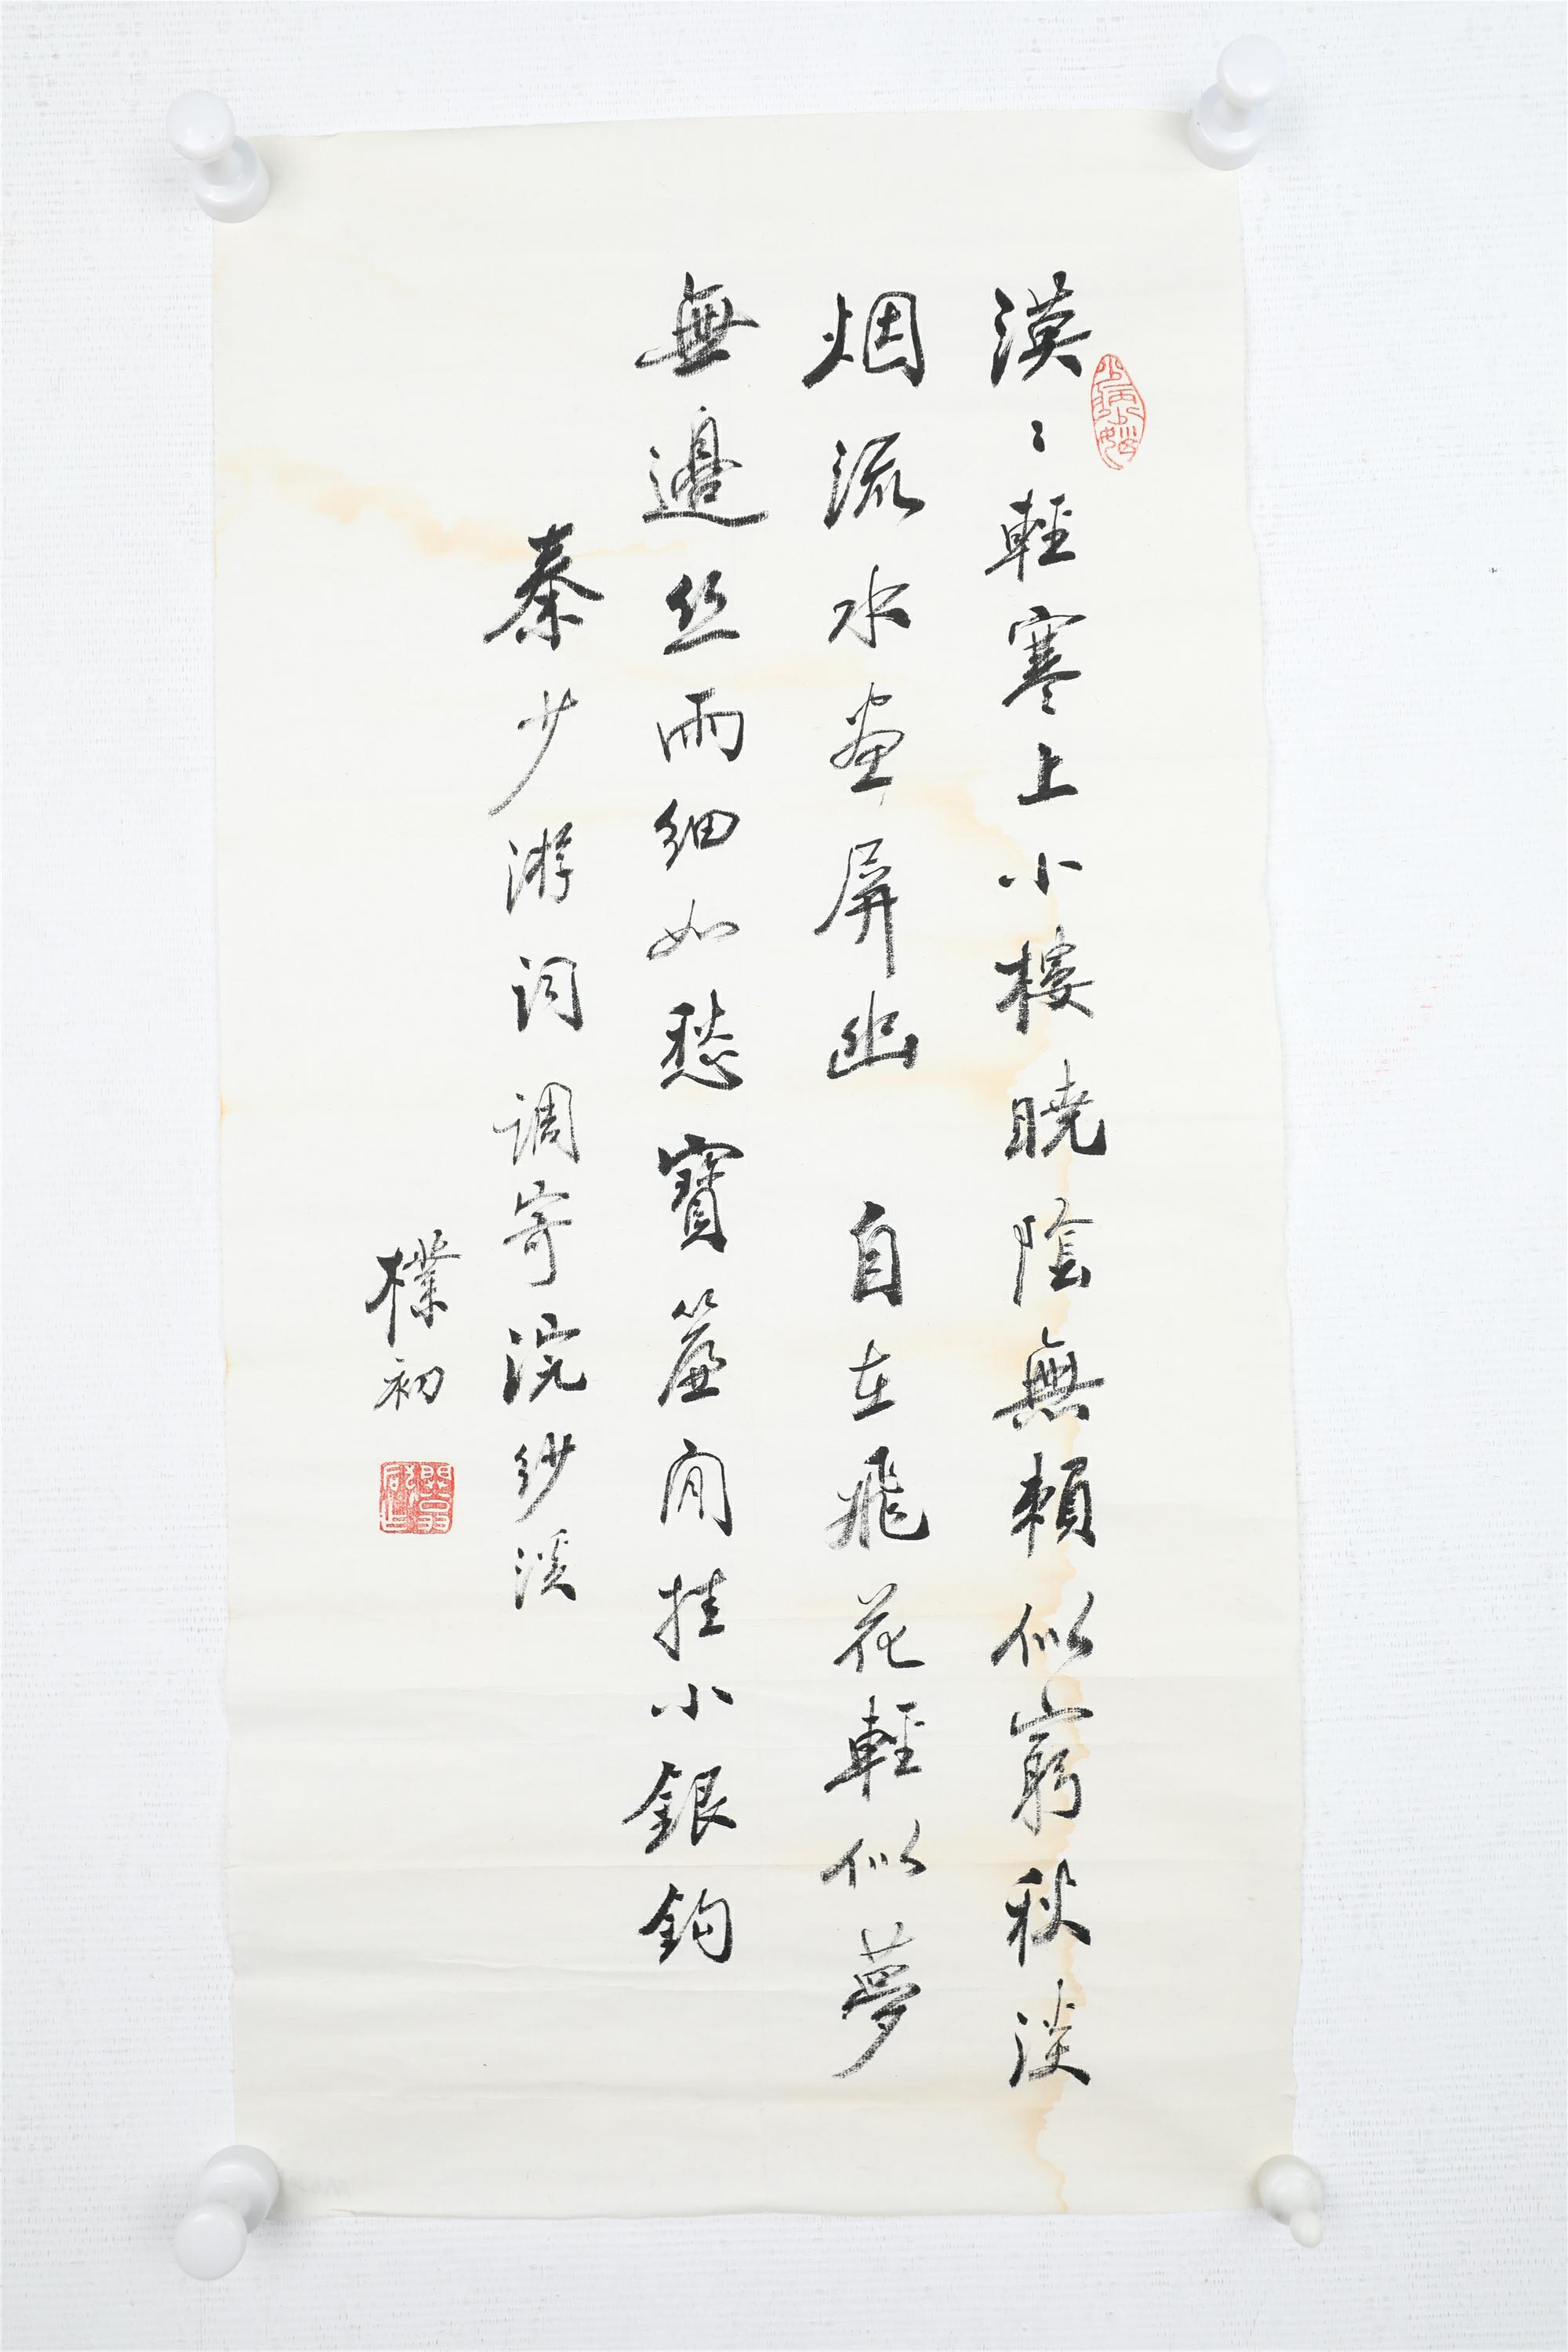 漠〻輕寒上小樓曉陰無賴似窮秋淡
烟流水畫屏幽 自在飛花輕似夢
無邊丝雨細如愁寶簾閒挂小銀鈎
秦少游词调寄浣纱溪
樸初